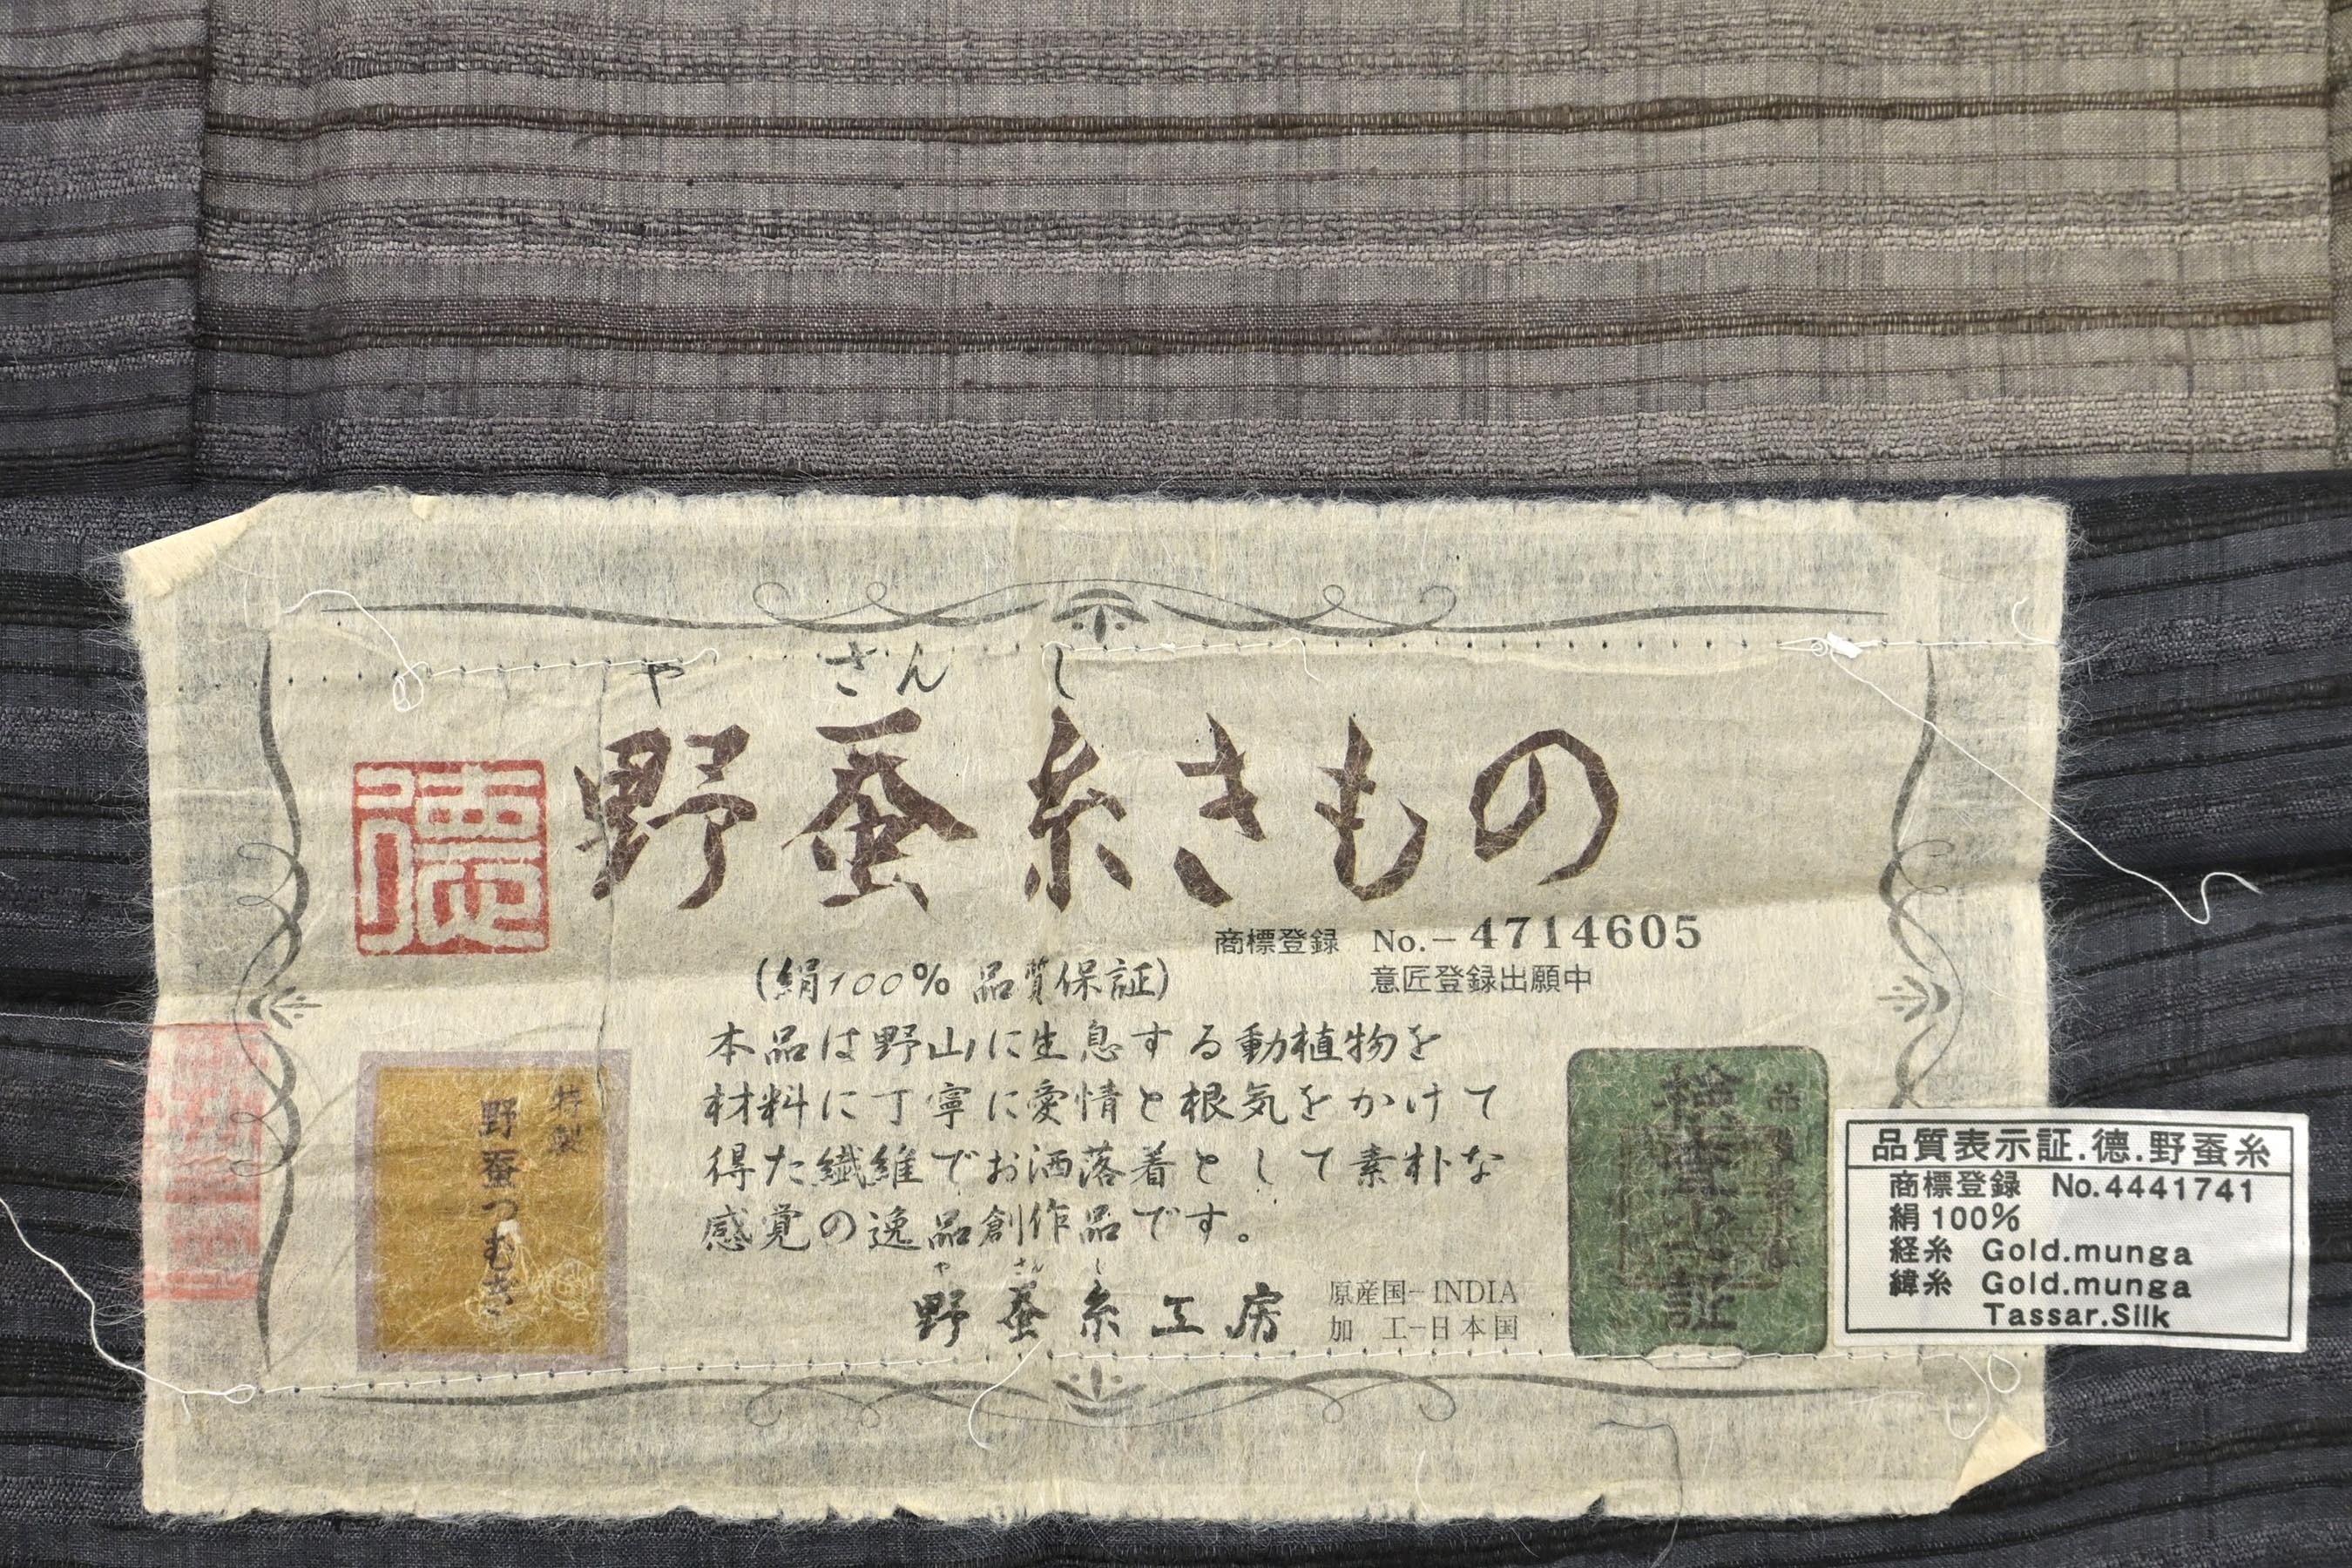 や さん し
野蚕糸きもの
德
商標登録 No.-4714605
意匠登録出願中
(絹100% 品質保証)
本品は野山に生息する動植物を
材料に丁寧に愛情と根気をかけて
得た繊維でお洒落着として素朴な
感覚の逸品創作品です。
や さん し
野蚕糸工房
原産国-INDIA
加 工-日本国
特製
野蚕つむぎ
検査之証
品質表示証.德.野蚕糸
商標登録 No.4441741
絹100%
経糸 Gold.munga
緯糸 Gold.munga
Tassar.Silk